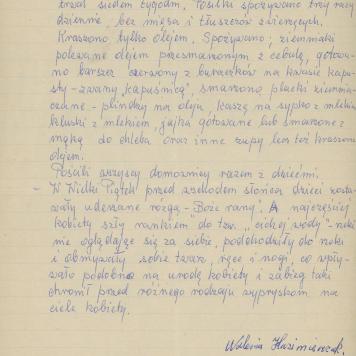 trzał siedem tygodni. Posiłki spożywano trzy razy
dziennie, bez mięsa i tłuszczów zwierzęcych.
Kraszono tylko olejem. Spożywano; ziemniaki
polewane olejem przesmażonym z cebulą, gotowa-
no barszcz czerwony z buraczków na kwasie kapu-
sty - zwany "kapuśnicą", smażono placki ziemnia-
czane - plindzy na oleju, kaszę na sypko z mlekiem
kluski z mlekiem, jajka gotowane lub smażone z
mąką do chleba oraz inne zupy lecz też kraszone
olejem.
Pościli wszyscy domownicy razem z dziećmi.
- W Wielki Piątek przed wschodem słońca dzieci zosta-
wały uderzane rózgą - "Boże rany". A najczęściej
kobiety szły rankiem do tzw. "cichej wody" - neki
nie oglądając się za siebie, podchodziły do rzeki
i obmywały sobie twarz, ręce i nogi, co wpły-
wało podobno na urodę kobiety i zabieg taki
chronił przed różnego rodzaju wypryskom na
ciele kobiety.
Waleria Kazimierczak